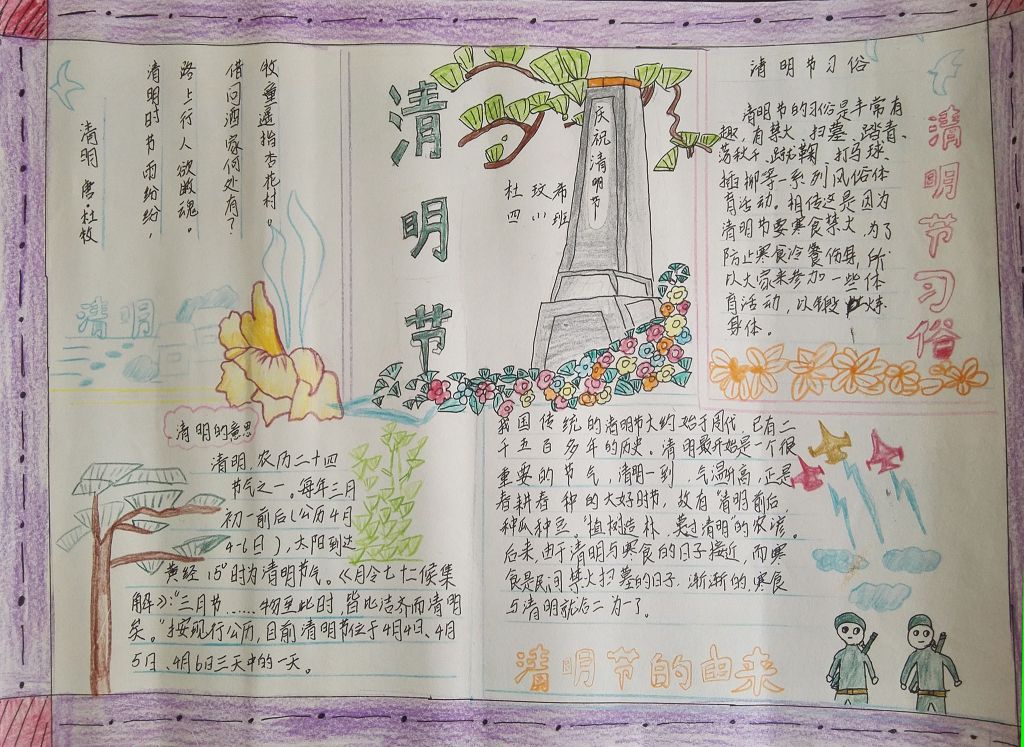 清明 唐·杜牧
清明时节雨纷纷，
路上行人欲断魂。
借问酒家何处有？
牧童遥指杏花村。
清明
清明节
庆祝清明节
杜玟希
四小班
清明节习俗
清明节的习俗是丰常有
趣，有禁火、扫墓、踏青、
荡秋千、蹴鞠、打马球、
插柳等一系列风俗体
育活动。相传这是因为
清明节要寒食禁火，为了
防止寒食冷餐伤身，所
以大家来参加一些体
育活动，以锻炼
身体。
清明节习俗
清明的意思
清明，农历二十四
节气之一。每年三月
初一前后（公历4月
4-6日），太阳到达
黄经15°时为清明节气。《月令七十二候集
解》：“三月节……物至此时，皆比洁齐而清明
矣。”按现行公历，目前清明节位于4月4日、4月
5日、4月6日三天中的一天。
我国传统的清明节大约始于周代，已有二
千五百多年的历史。清明最开始是一个很
重要的节气，清明一到，气温渐高，正是
春耕春种的大好时节，故有“清明前后，
种瓜种豆。”“植树造林，莫过清明”的农谚。
后来，由于清明与寒食的日子接近，而寒
食是民间禁火扫墓的日子，渐渐的，寒食
与清明就合二为一了。
清明节的由来